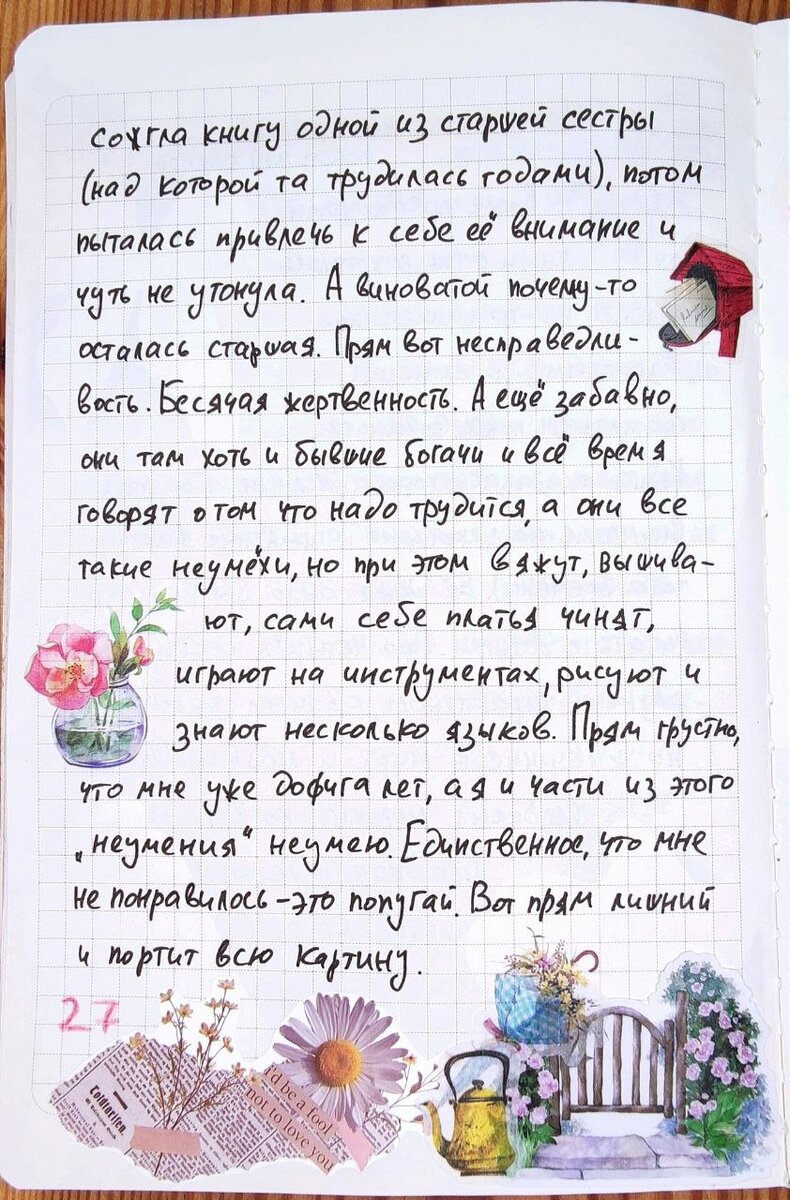 сожгла книгу одной из старшей сестры
(над которой та трудилась годами), потом
пыталась привлечь к себе её внимание и
чуть не утонула. А виноватой почему-то
осталась старшая. Прям вот несправедли-
вость. Бесячая жертвенность. А ещё забавно,
они там хоть и бывшие богачи и всё время
говорят о том что надо трудится, а они все
такие неумёхи, но при этом вяжут, вышива-
ют, сами себе платья чинят,
играют на инструментах, рисуют и
знают несколько языков. Прям грустно,
что мне уже дофига лет, а я и части из этого
„неумения“ неумею. Единственное, что мне
не понравилось - это попугай. Вот прям лишний
и портит всю картину.
27
I'd be a fool
not to love you